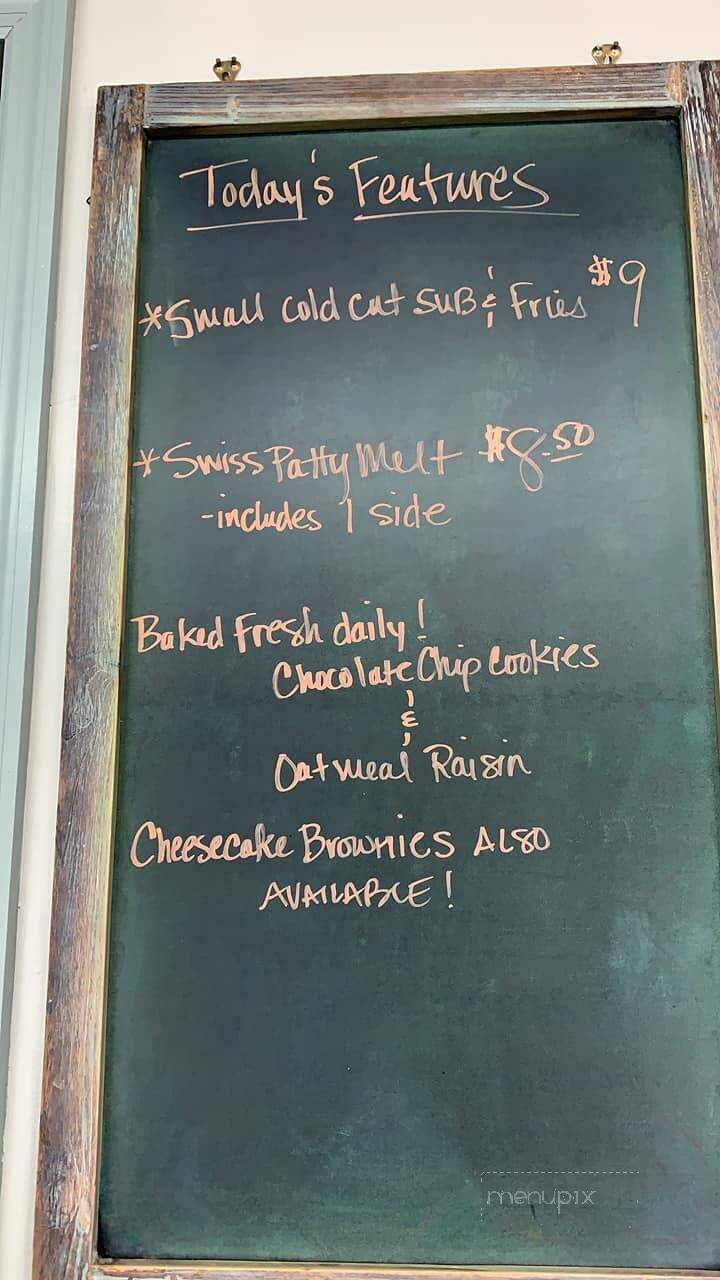 Today's Features
*Small Cold Cut SUB & Fries $9
*Swiss Patty Melt $8.50
-includes 1 side
Baked Fresh daily!
Chocolate Chip Cookies
&
Oatmeal Raisin
Cheesecake Brownies ALSO
AVAILABLE!
menupix